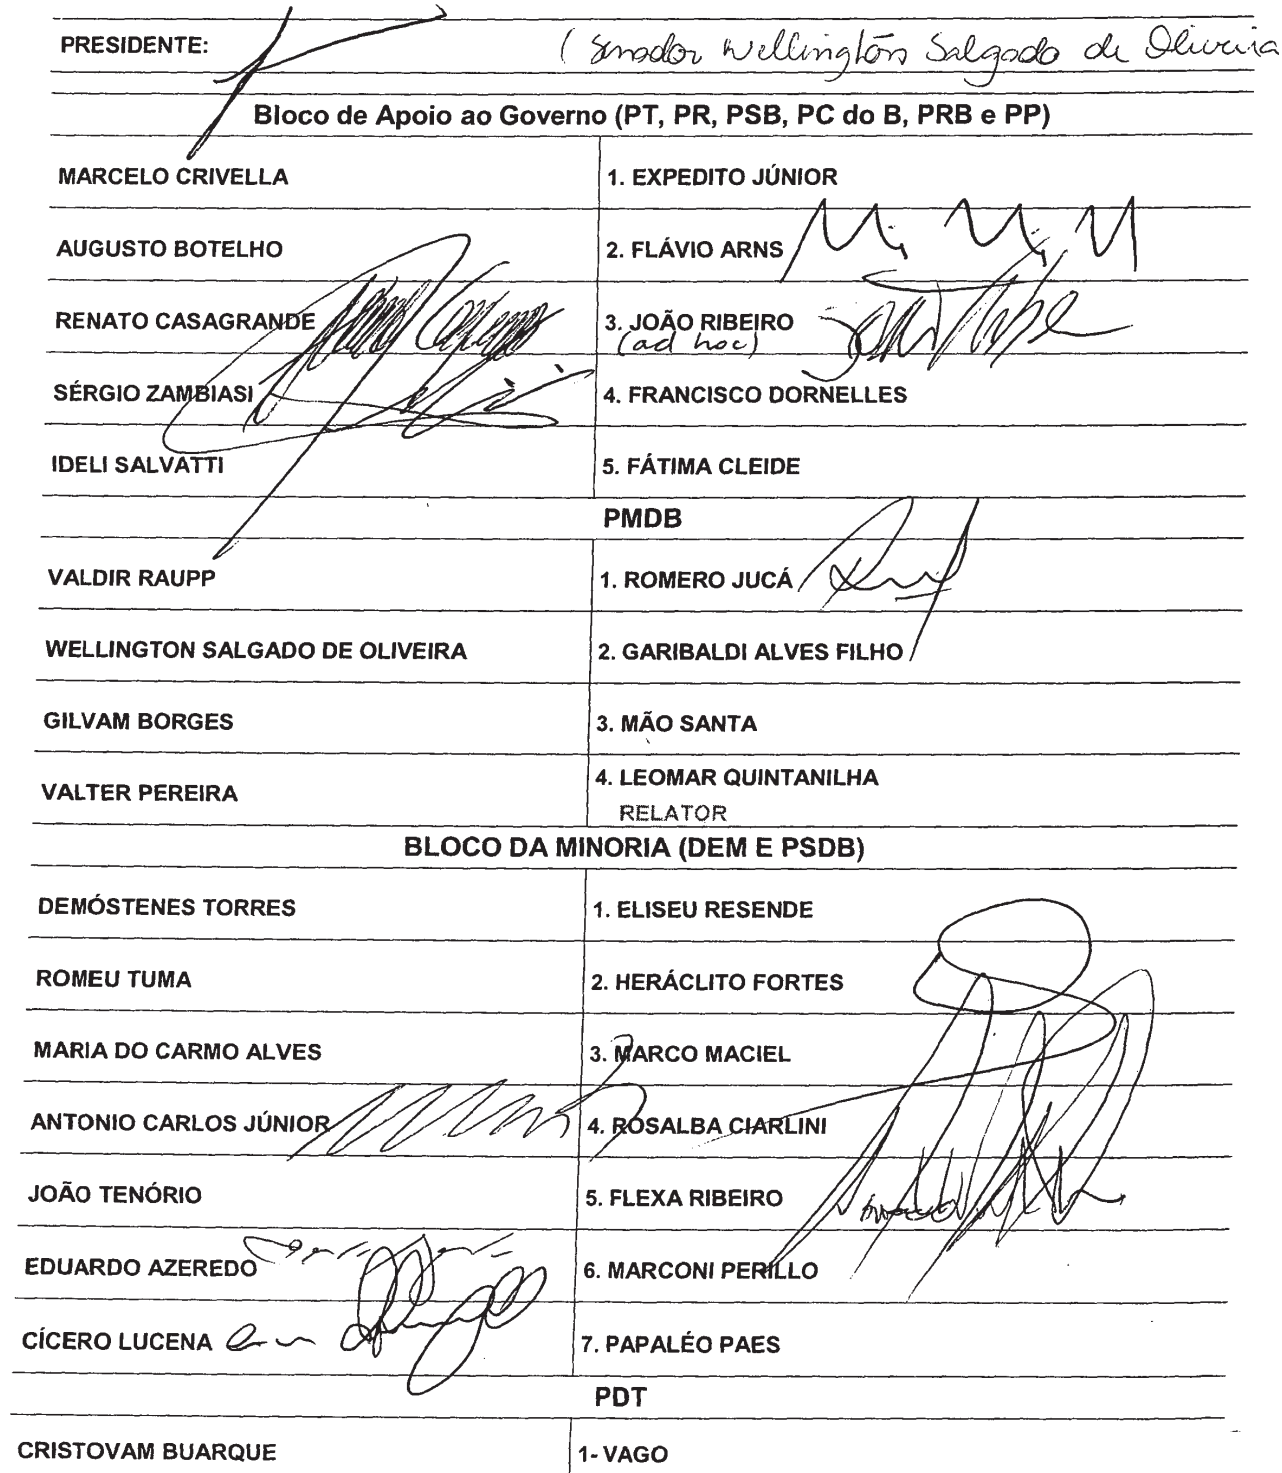 PRESIDENTE: (Senador Wellington Salgado de Oliveira
Bloco de Apoio ao Governo (PT, PR, PSB, PC do B, PRB e PP)
MARCELO CRIVELLA 1. EXPEDITO JÚNIOR
AUGUSTO BOTELHO 2. FLÁVIO ARNS
RENATO CASAGRANDE 3. JOÃO RIBEIRO
(ad hoc)
SÉRGIO ZAMBIASI 4. FRANCISCO DORNELLES
IDELI SALVATTI 5. FÁTIMA CLEIDE
PMDB
VALDIR RAUPP 1. ROMERO JUCÁ
WELLINGTON SALGADO DE OLIVEIRA 2. GARIBALDI ALVES FILHO
GILVAM BORGES 3. MÃO SANTA
VALTER PEREIRA 4. LEOMAR QUINTANILHA
RELATOR
BLOCO DA MINORIA (DEM E PSDB)
DEMÓSTENES TORRES 1. ELISEU RESENDE
ROMEU TUMA 2. HERÁCLITO FORTES
MARIA DO CARMO ALVES 3. MARCO MACIEL
ANTONIO CARLOS JÚNIOR 4. ROSALBA CIARLINI
JOÃO TENÓRIO 5. FLEXA RIBEIRO
EDUARDO AZEREDO 6. MARCONI PERILLO
CÍCERO LUCENA 7. PAPALÉO PAES
PDT
CRISTOVAM BUARQUE 1- VAGO